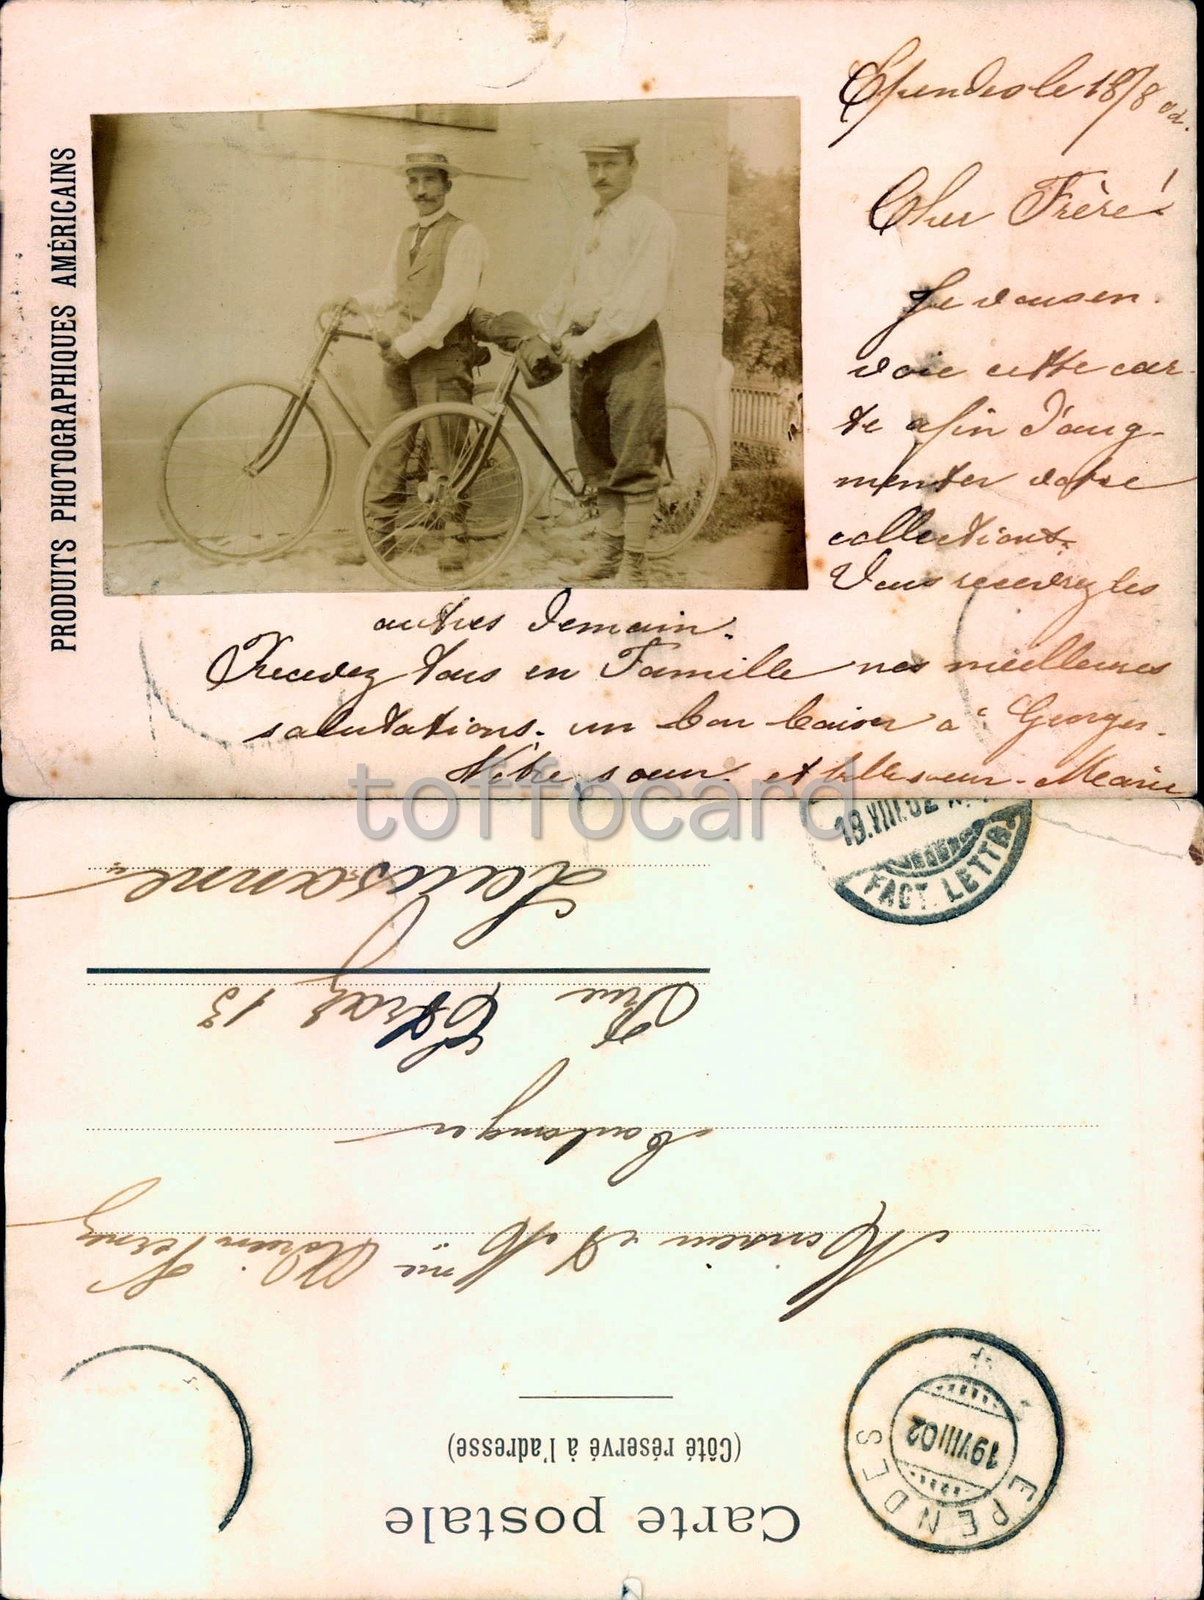 PRODUITS PHOTOGRAPHIQUES AMÉRICAINS
Ependes le 18/8 02.
Cher Frère!
Je vous en
voie cette car
te afin d'aug-
menter votre
collections.
Vous recevrez les
autres demain.
Recevez tous en Famille nos meilleures
salutations. un bon baiser a Georges.
Vôtre sœur et belle sœur. Marie
toffocard
19.VIII.02
FACT. LETTR.
Carte postale
(Côté réservé à l'adresse)
EPENDES
19 VIII 02
Monsieur et Mme
Boulanger
Rue Etraz 13
Lausanne